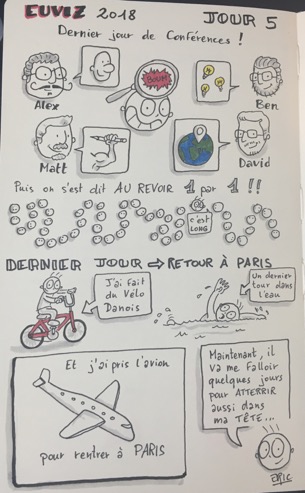 EUVIZ 2018
JOUR 5
Dernier jour de Conférences !
BOUM
Alex
Ben
Matt
David
Puis on s'est dit AU REVOIR 1 par 1 !!
c'est
LONG
DERNIER JOUR ⇒ RETOUR À PARIS
J'ai fait
du Vélo
Danois
un dernier
tour dans
l'eau
Et j'ai pris l'avion
pour rentrer à PARIS
Maintenant, il
va me falloir
quelques jours
pour ATTERRIR
aussi dans
ma TÊTE...
ERIC